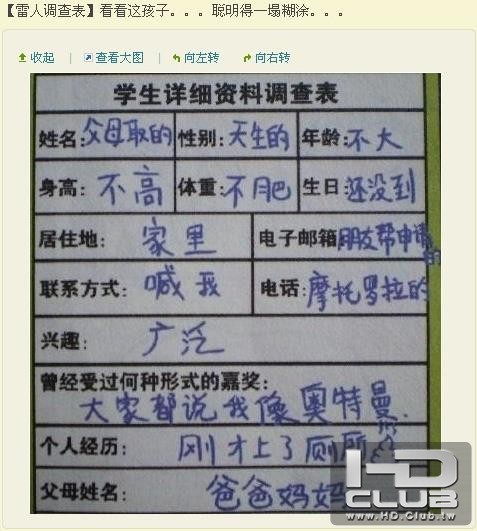 【雷人调查表】看看这孩子。。。聪明得一塌糊涂。。。
收起 | 查看大图 | 向左转 向右转
学生详细资料调查表
姓名:父母取的 性别:天生的 年龄:不大
身高:不高 体重:不肥 生日:还没到
居住地:家里 电子邮箱 朋友帮申请的
联系方式:喊我 电话:摩托罗拉的
兴趣:广泛
曾经受过何种形式的嘉奖:
大家都说我像奥特曼.
个人经历:刚才上了厕所
父母姓名:爸爸妈妈
HD
CLUB
www.HD.Club.tw